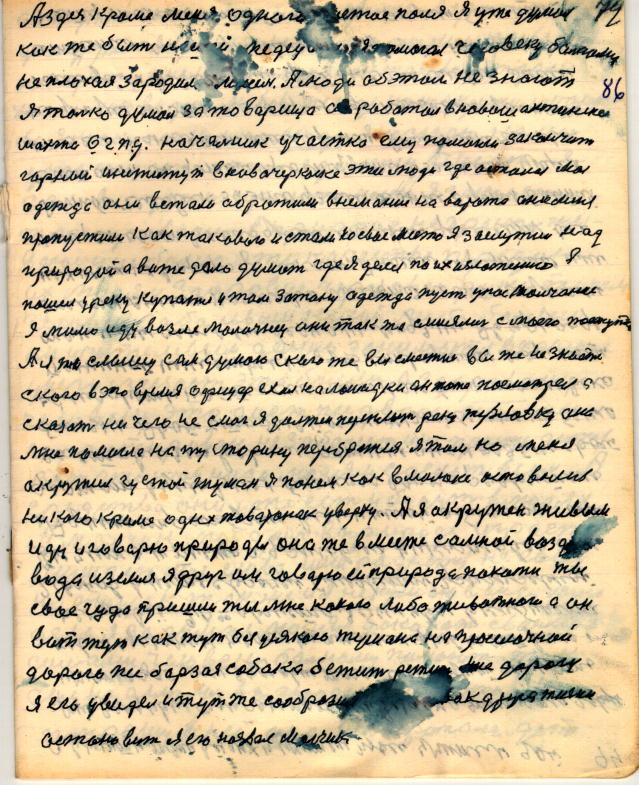 А здес Кроме меня одного чистое поля Я уже думал 74
как же быт идти педеу помогал человеку
не плохая зародил. А люди об этом не знают 86
Я толко думал за товарища он работал в новошахтинске
шахта ОГПУ. начялник участка ему помогли закончит
горный институт в новочеркаске эти люди где осталас моя
одежда они встали обротили внемания на ворота они меня
пропустили Как такового и стали на свое место Я за шутил над
природой а ви те дало думат где я делся по их изложению Я
пошел у реку купатся и там затону одежда пуст у пасмолчания
Я мимо иду возле молочнец они так же смиялис с моего поступка
А я слышу сам думаю с кого же вы смиетес вы же не знаете
с кого в это время офицер ехал на лошадки он тоже посмотрел а
сказат ни чего не смог я должен переплыт реку тузловку она
мне помогла на ту сторону перебратся я там но меня
акружил густой туман я понем как в молоке остовылис
ни кого кроме одних жаваронак уверху. А я окружен живым
иду и говорю природы она же вместе самной возду
вода и земля я друг им говорю ей природа покажи ты
свое чудо пришли ты мне какого либо животного а он
вит тут как тут без уякого тумана на проселочной
дороге же барзая собака бежит дорогу
я его увидел и тут же сообрази как друга жизни
остановит я его назвал Малчик